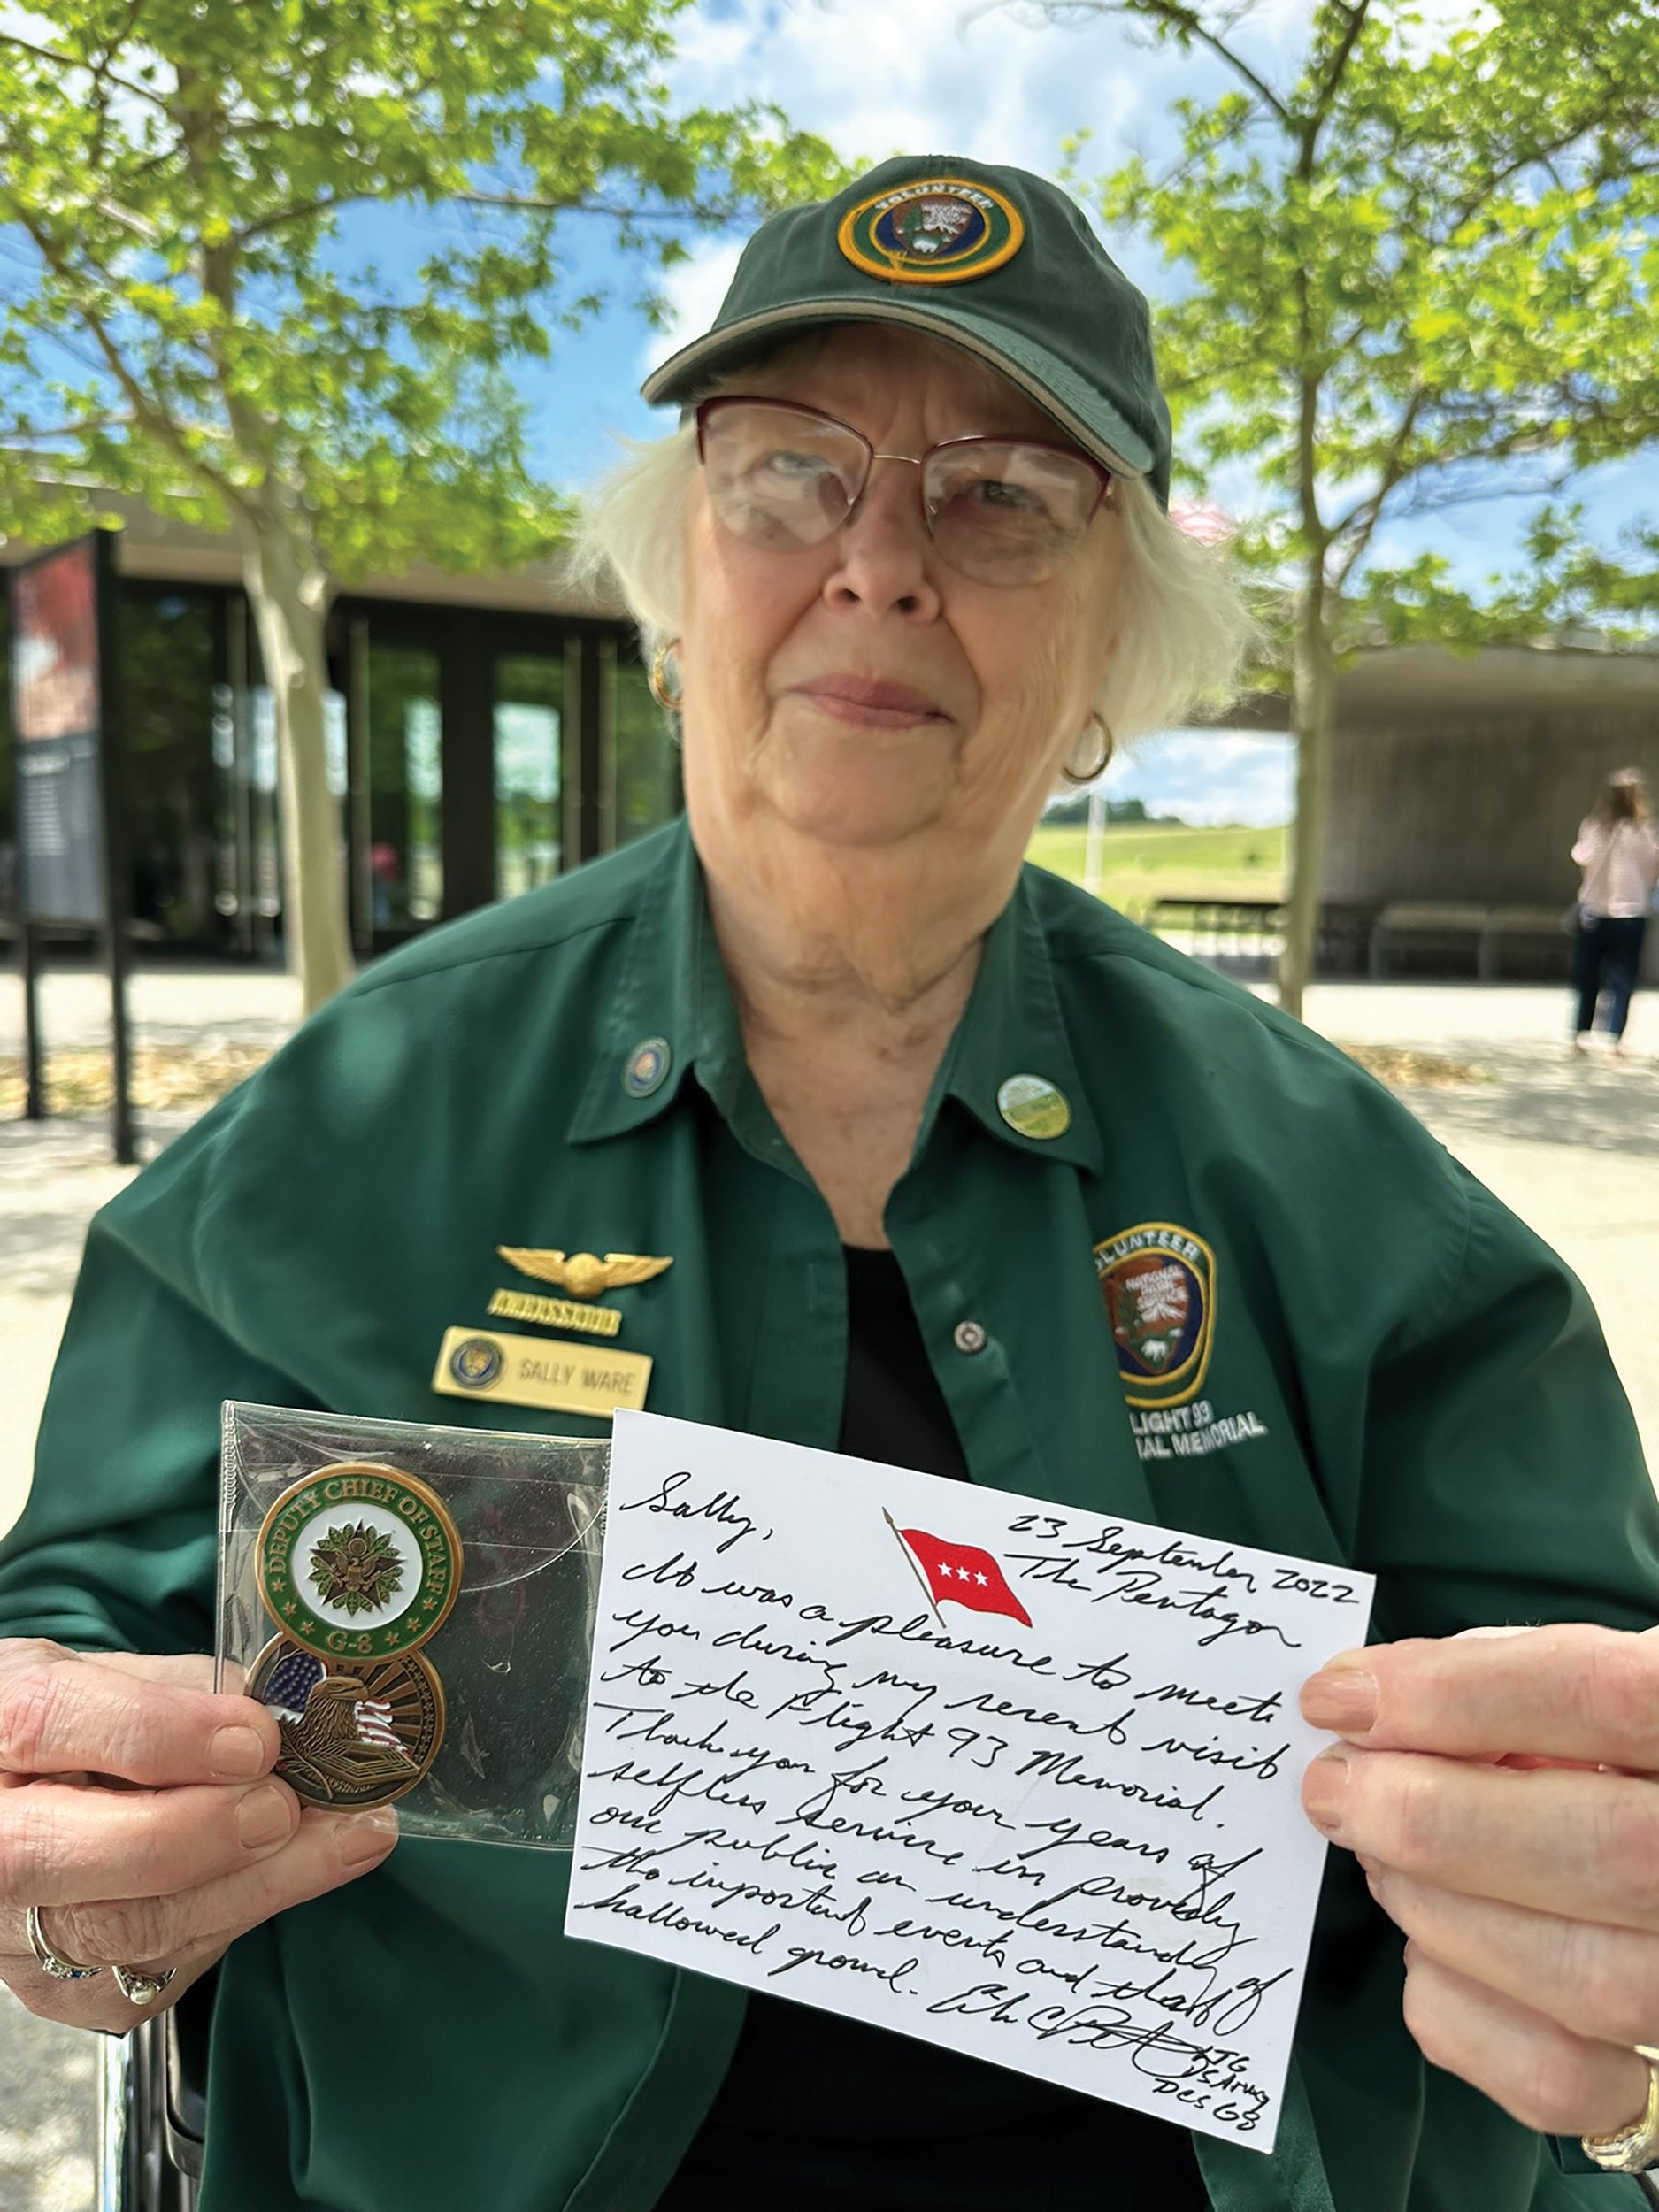 VOLUNTEER
AMBASSADOR
SALLY WARE
VOLUNTEER
NATIONAL
PARK
SERVICE
LIGHT 93
IAL MEMORIAL
DEPUTY CHIEF OF STAFF
G-8
23 September 2022
The Pentagon
Sally,
It was a pleasure to meet
you during my recent visit
to the Flight 93 Memorial.
Thank you for your years of
selfless service in providing
our public an understanding of
the important events and that
hallowed ground.
LTG
US Army
DCS G8